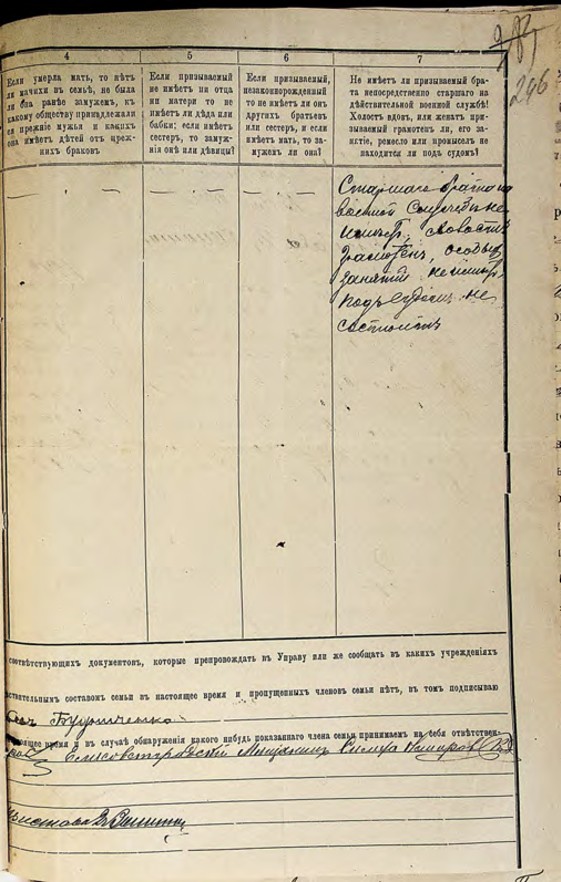 296
4
5
6
7
Если умерла мать, то нѣтъ
ли мачихи въ семьѣ, не была
ли она ранѣе замужемъ, къ
какому обществу принадлежали
ея прежніе мужья и какихъ
она имѣетъ дѣтей отъ преж-
нихъ браковъ
Если призываемый
не имѣетъ ни отца
ни матери то не
имѣетъ ли дѣда или
бабки; если имѣетъ
сестеръ, то замуж-
нія онѣ или дѣвицы?
Если призываемый,
незаконнорожденный
то не имѣетъ ли онъ
другихъ братьевъ
или сестеръ, и если
имѣетъ мать, то за-
мужемъ ли она?
Не имѣетъ ли призываемый бра-
та непосредственно старшаго на
дѣйствительной военной службѣ!
Холостъ вдовъ, или женатъ при-
зываемый грамотенъ ли, его за-
нятіе, ремесло или промыселъ не
находится ли подъ судомъ?
Старшаго брата на
военной службѣ не
грамотенъ, особыхъ
занятій не
подъ судомъ не
состоитъ
соотвѣтствующихъ документовъ, которые препровождать въ Управу или же сообщать въ какихъ учрежденіяхъ
ствительнымъ составомъ семьи въ настоящее время и пропущенныхъ членовъ семьи нѣтъ, въ томъ подписываю
время и въ случаѣ обнаруженія какого нибудь показаннаго члена семьи принимаемъ на себя отвѣтствен-
Елисаветградскій Мѣщанинъ